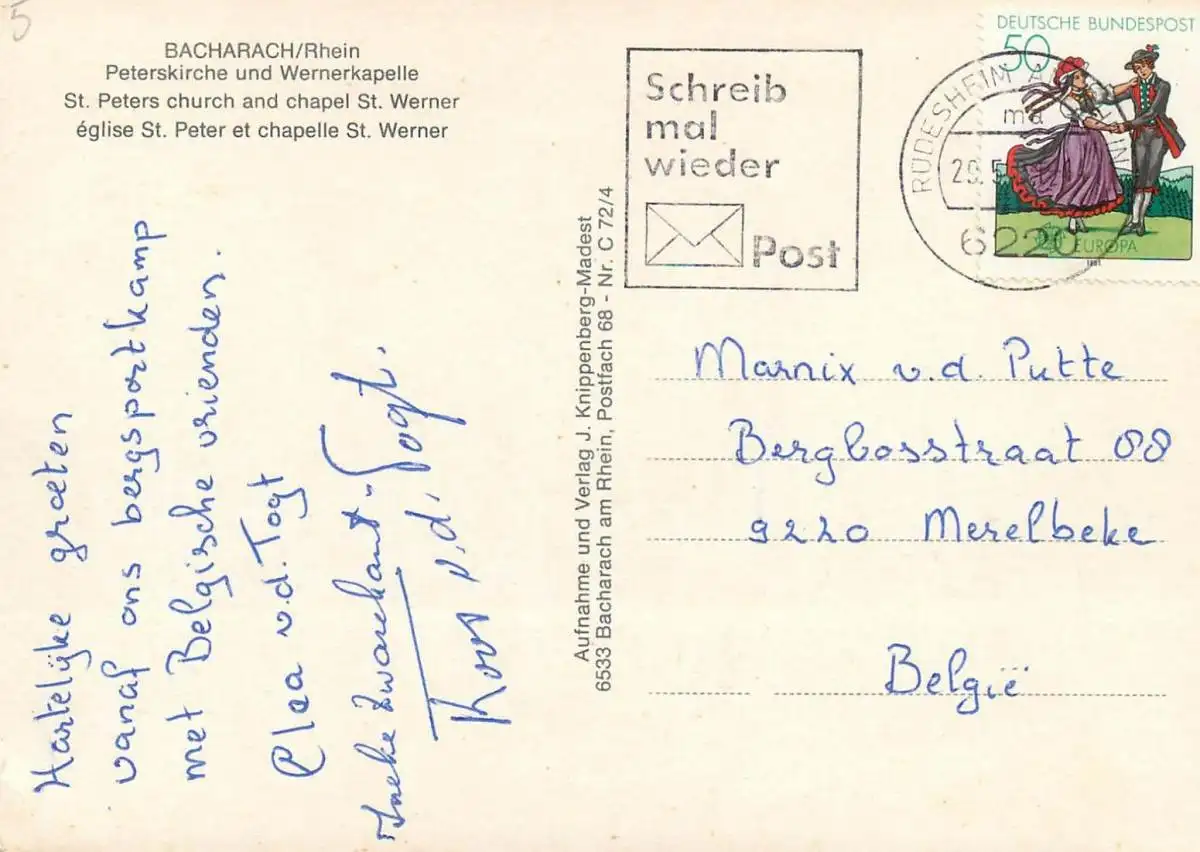 5
BACHARACH/Rhein
Peterskirche und Wernerkapelle
St. Peters church and chapel St. Werner
église St. Peter et chapelle St. Werner
Hartelijke groeten
vanaf ons bergsportkamp
met Belgische vrienden.
Clea v.d. Togt
Ineke Zwarekant-Togt.
Koos v.d.
Aufnahme und Verlag J. Knippenberg-Madest
6533 Bacharach am Rhein, Postfach 68 - Nr. C 72/4
Schreib
mal
wieder
Post
RÜDESHEIM AM RHEIN
ma
29.5
6220
DEUTSCHE BUNDESPOST
50
EUROPA
1981
Marnix v.d. Putte
Bergbosstraat 88
9220 Merelbeke
België